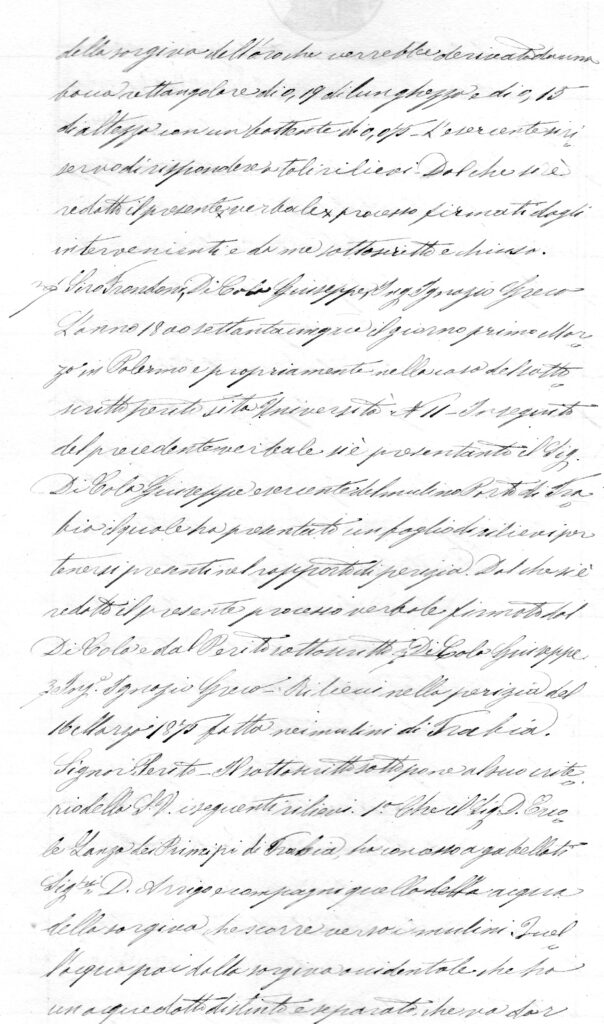 della sorgiva dell'oro che verrebbe derivata da una
bocca rettangolare di 0,19 di lunghezza e di 0,15
di altezza con un battente di 0,05 – L'esercente si ri
servò di rispondere a tali rilievi – Dal che si è
redatto il presente verbale processo firmati dagli
intervenienti e da me sottoscritto e chiuso.
Siro Frondoni, Di Cola Giuseppe, Ing. Ignazio Greco
L'anno 18 settantacinque il giorno primo Mar
zo in Palermo e propriamente nella casa del sotto
scritto perito sita Università N 11 – In seguito
del precedente verbale si è presentanto il Sig.
Di Cola Giuseppe esercente del mulino Porto di Tra
bia il quale ha presentato un foglio di rilievi per
tenersi presenti nel rapporto di perizia. Dal che si è
redatto il presente processo verbale firmato dal
Di Cola e dal Perito sottoscritto Di Cola Giuseppe
Ing. Ignazio Greco – Rilievi nella perizia del
16 Marzo 1875 fatta nei mulini di Trabia.
Signor Perito – Il sottoscritto sottopone al suo crite
rio della S.V. i seguenti rilievi. 1° Che il Sig. D. Erco
le Lanza dei Principi di Trabia, ha concesso a gabelloti
Sig.ri D. Arrigo e compagni quella della acqua
della sorgiva, che scorre verso i mulini. Quel
l'acqua poi dalla sorgiva occidentale che ha
un acquedotto distinto e separato, che va a